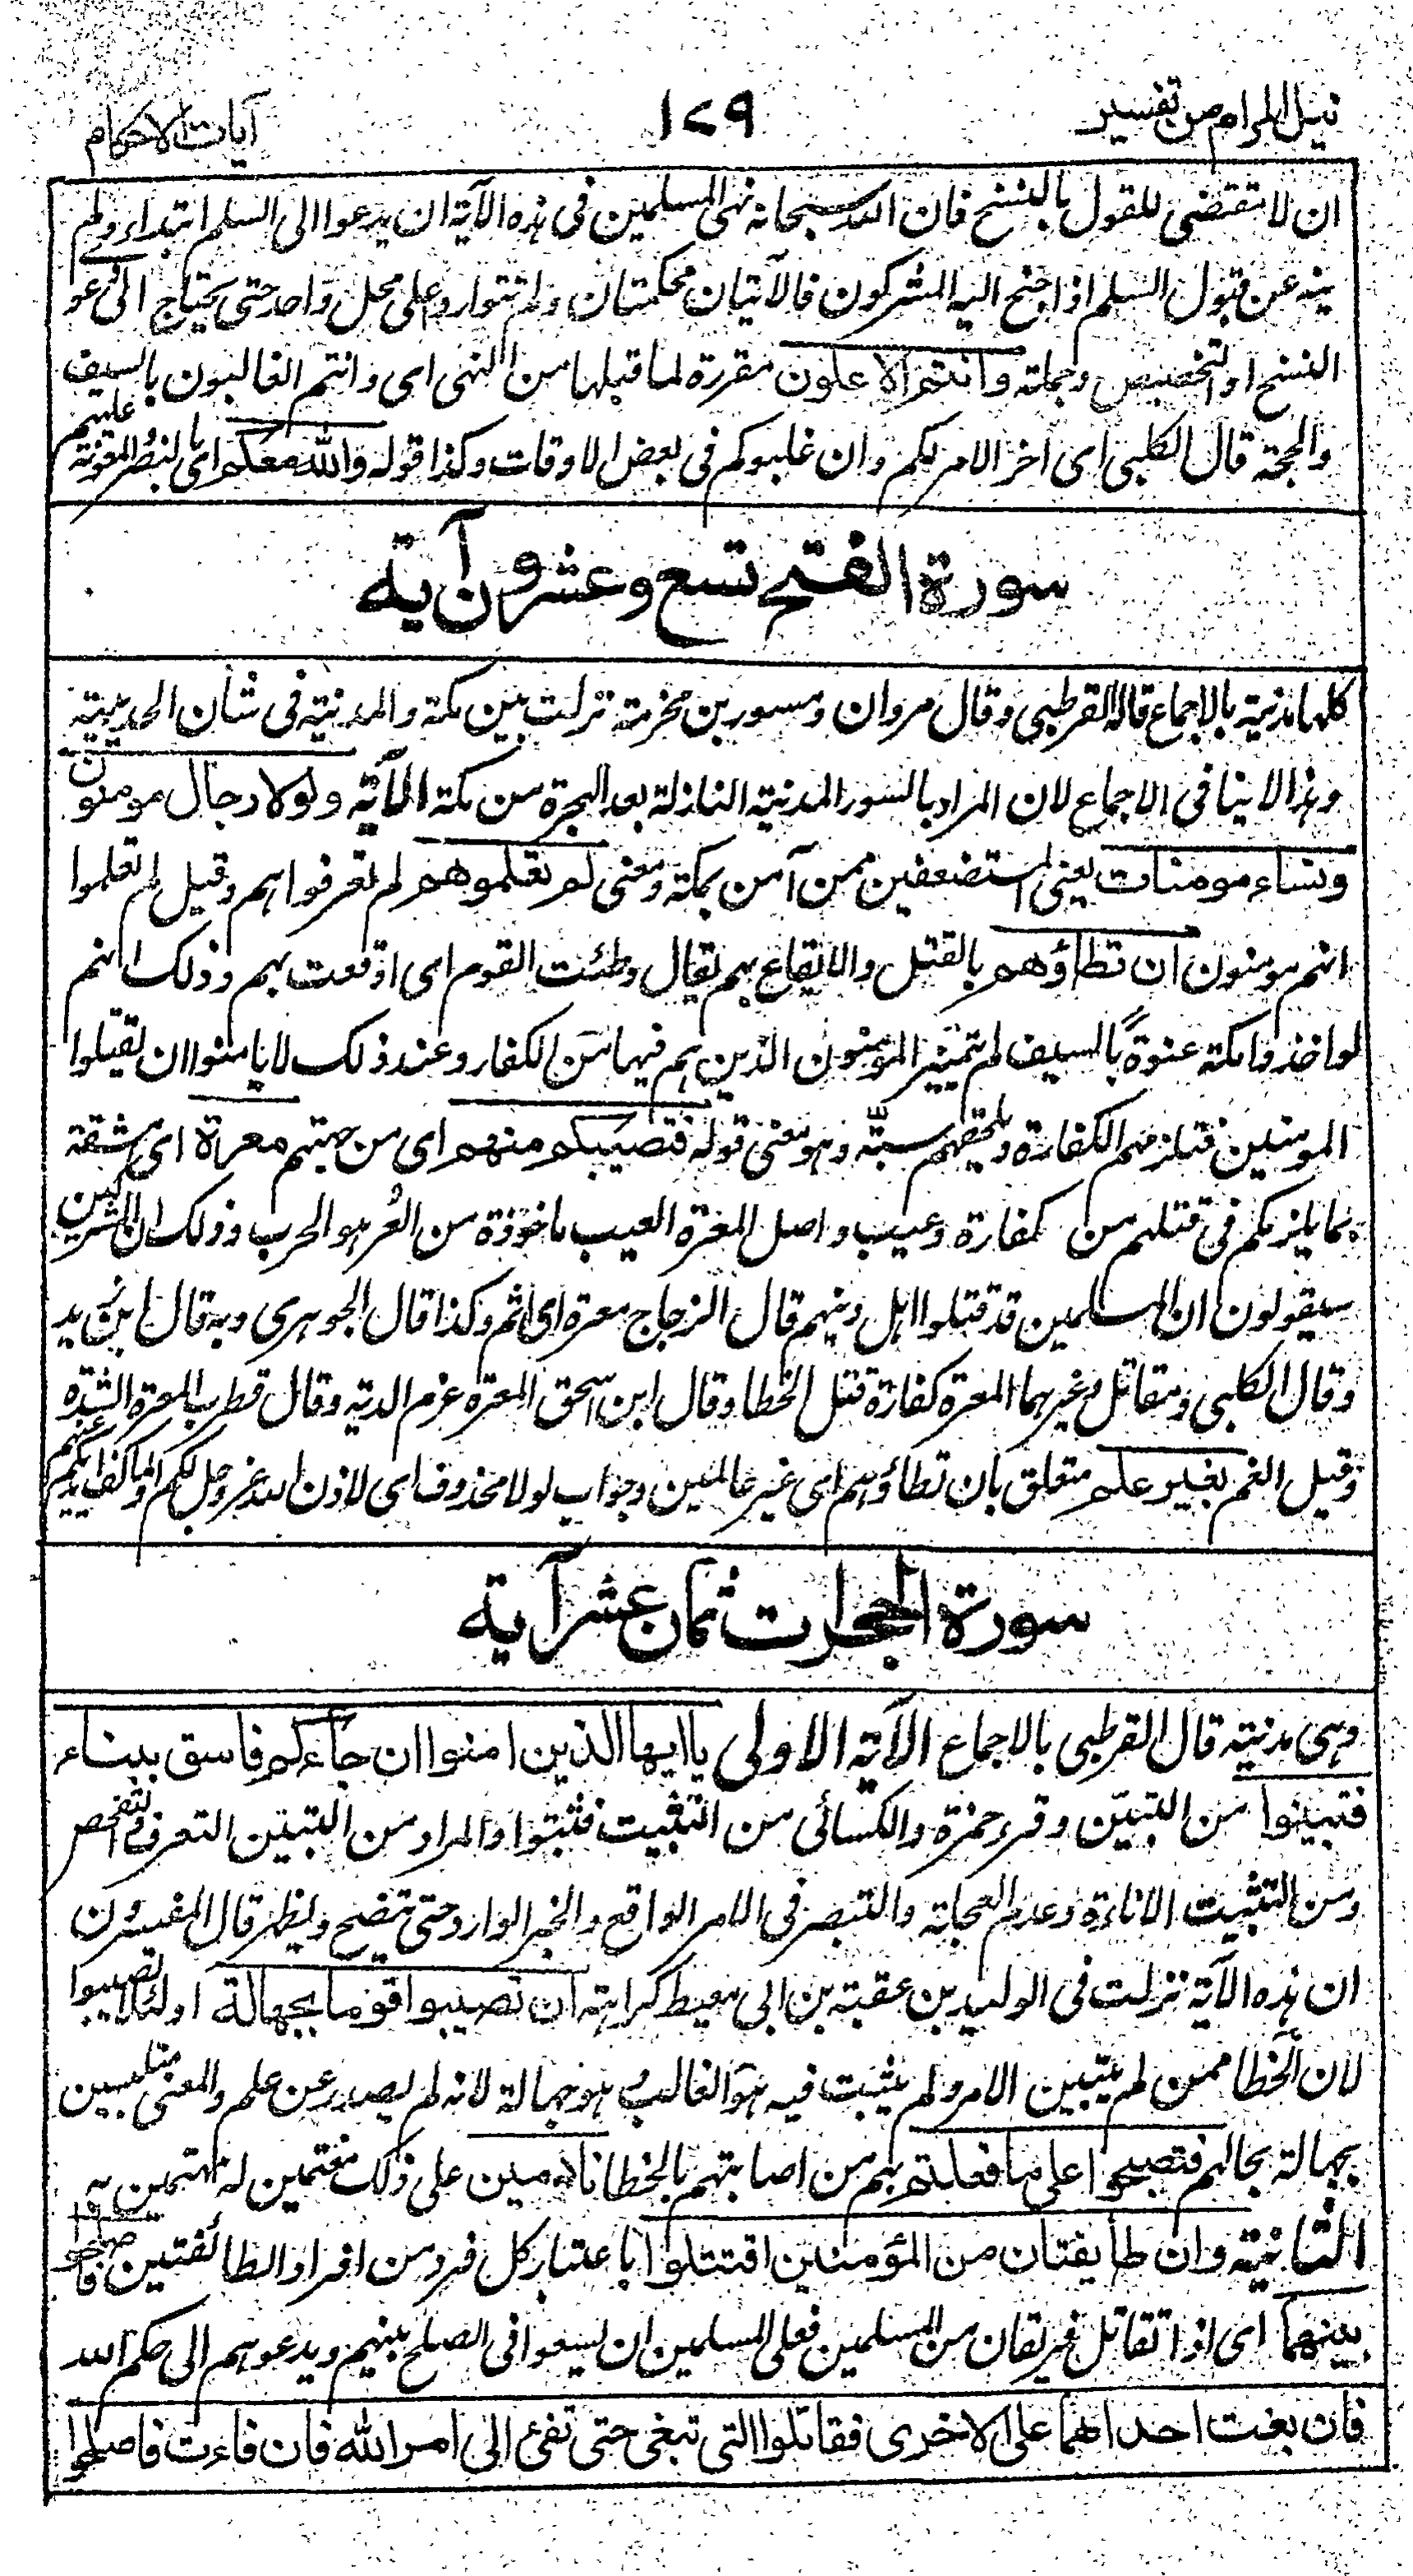 نيل المرام من تفسير
١٧٩
آيات الاحكام
ان لا تقتضى للقول بالنسخ فان الله سبحانه نهى المسلمين فى هذه الآية ان يدعوا الى السلم ابتداء ولم
ينه عن قبول السلم اذا جنح اليه المشركون فالآيتان محكمتان ولم تتواردا على محل واحد حتى يحتاج الى دعو
النسخ او التخصيص وجملة وانتم الاعلون مقررة لما قبلها من النهى اى وانتم الغالبون بالسيف
والحجة قال الكلبى اى اخر الامر لكم وان غلبوكم فى بعض الاوقات وكذا قوله والله معكم اى بالنصر والمعونة عليهم
سورة الفتح تسع وعشرون آية
كلها مدنية بالاجماع قاله القرطبى وقال مروان ومسور بن مخرمة نزلت بين مكة والمدينة فى شأن الحديبية
وهذا لا ينافى الاجماع لان المراد بالسور المدنية النازلة بعد الهجرة من مكة الآية ولولا رجال مومنون
ونساء مومنات يعنى المستضعفين ممن آمن بمكة ومعنى لم تعلموهم لم تعرفوا هم وقيل لم تعلموا
انهم مومنون ان تطاؤهم بالقتل والايقاع بهم يقال وطئت القوم اى اوقعت بهم وذلك انهم
لو اخذوا مكة عنوةً بالسيف لم يتميز المؤمنون الذين هم فيها من الكفار وعند ذلك لا يامنوا ان يقتلوا
المومنين فتلزمهم الكفارة ويلحقهم سبّة وهو معنى قوله فتصيبكم منهم اى من جهتهم معرة اى مشقة
بما يلزمكم فى قتلهم من كفارة وعيب واصل المعرة العيب ماخوذة من العُر هو الجرب وذلك ان المشركين
سيقولون ان المسلمين قد قتلوا اهل دينهم قال الزجاج معرة اى اثم وكذا قال الجوهرى وبه قال ابن زيد
وقال الكلبى ومقاتل وغيرهما المعرة كفارة قتل الخطا وقال ابن اسحق المعرة غرم الدية وقال قطرب المعرة الشدة
وقيل الغم بغير علم متعلق بان تطاؤهم اى غير عالمين وجواب لولا محذوف اى لاذن الله عز وجل لكم او لما كف ايديكم عنهم
سورة الحجرات ثمان عشر آية
وهى مدنية قال القرطبى بالاجماع الآية الاولى ياايها الذين امنوا ان جاءكم فاسق بنباء
فتبينوا من التبيّن وقرء حمزة والكسائى من التثبيت فتثبتوا والمراد من التبين التعرف والتفحص
ومن التثبيت الاناءة وعدم العجلة والتبصر فى الامر الواقع والخبر الوارد حتى يتضح ويظهر قال المفسرون
ان هذه الآية نزلت فى الوليد بن عقبة بن ابى معيط كراهة ان تصيبوا قوما بجهالة او لئلا تصيبوا
لان الخطا ممن لم يتبين الامر ولم يثبت فيه هو الغالب وهو جهالة لانه لم يصدر عن علم والمعنى متلبسين
بجهالة بحالهم فتصبحوا على ما فعلتم بهم من اصابتهم بالخطا نادمين على ذلك مغتمين له مهتمين به
الثانية وان طايفتان من المؤمنين اقتتلوا باعتبار كل فرد من افراد الطائفتين فاصلحوا
بينهما اى اذا تقاتل فريقان من المسلمين فعلى المسلمين ان يسعوا فى الصلح بينهم ويدعوهم الى حكم الله
فان بغت احداهما على الاخرى فقاتلوا التى تبغى حتى تفئ الى امر الله فان فاءت فاصلحوا